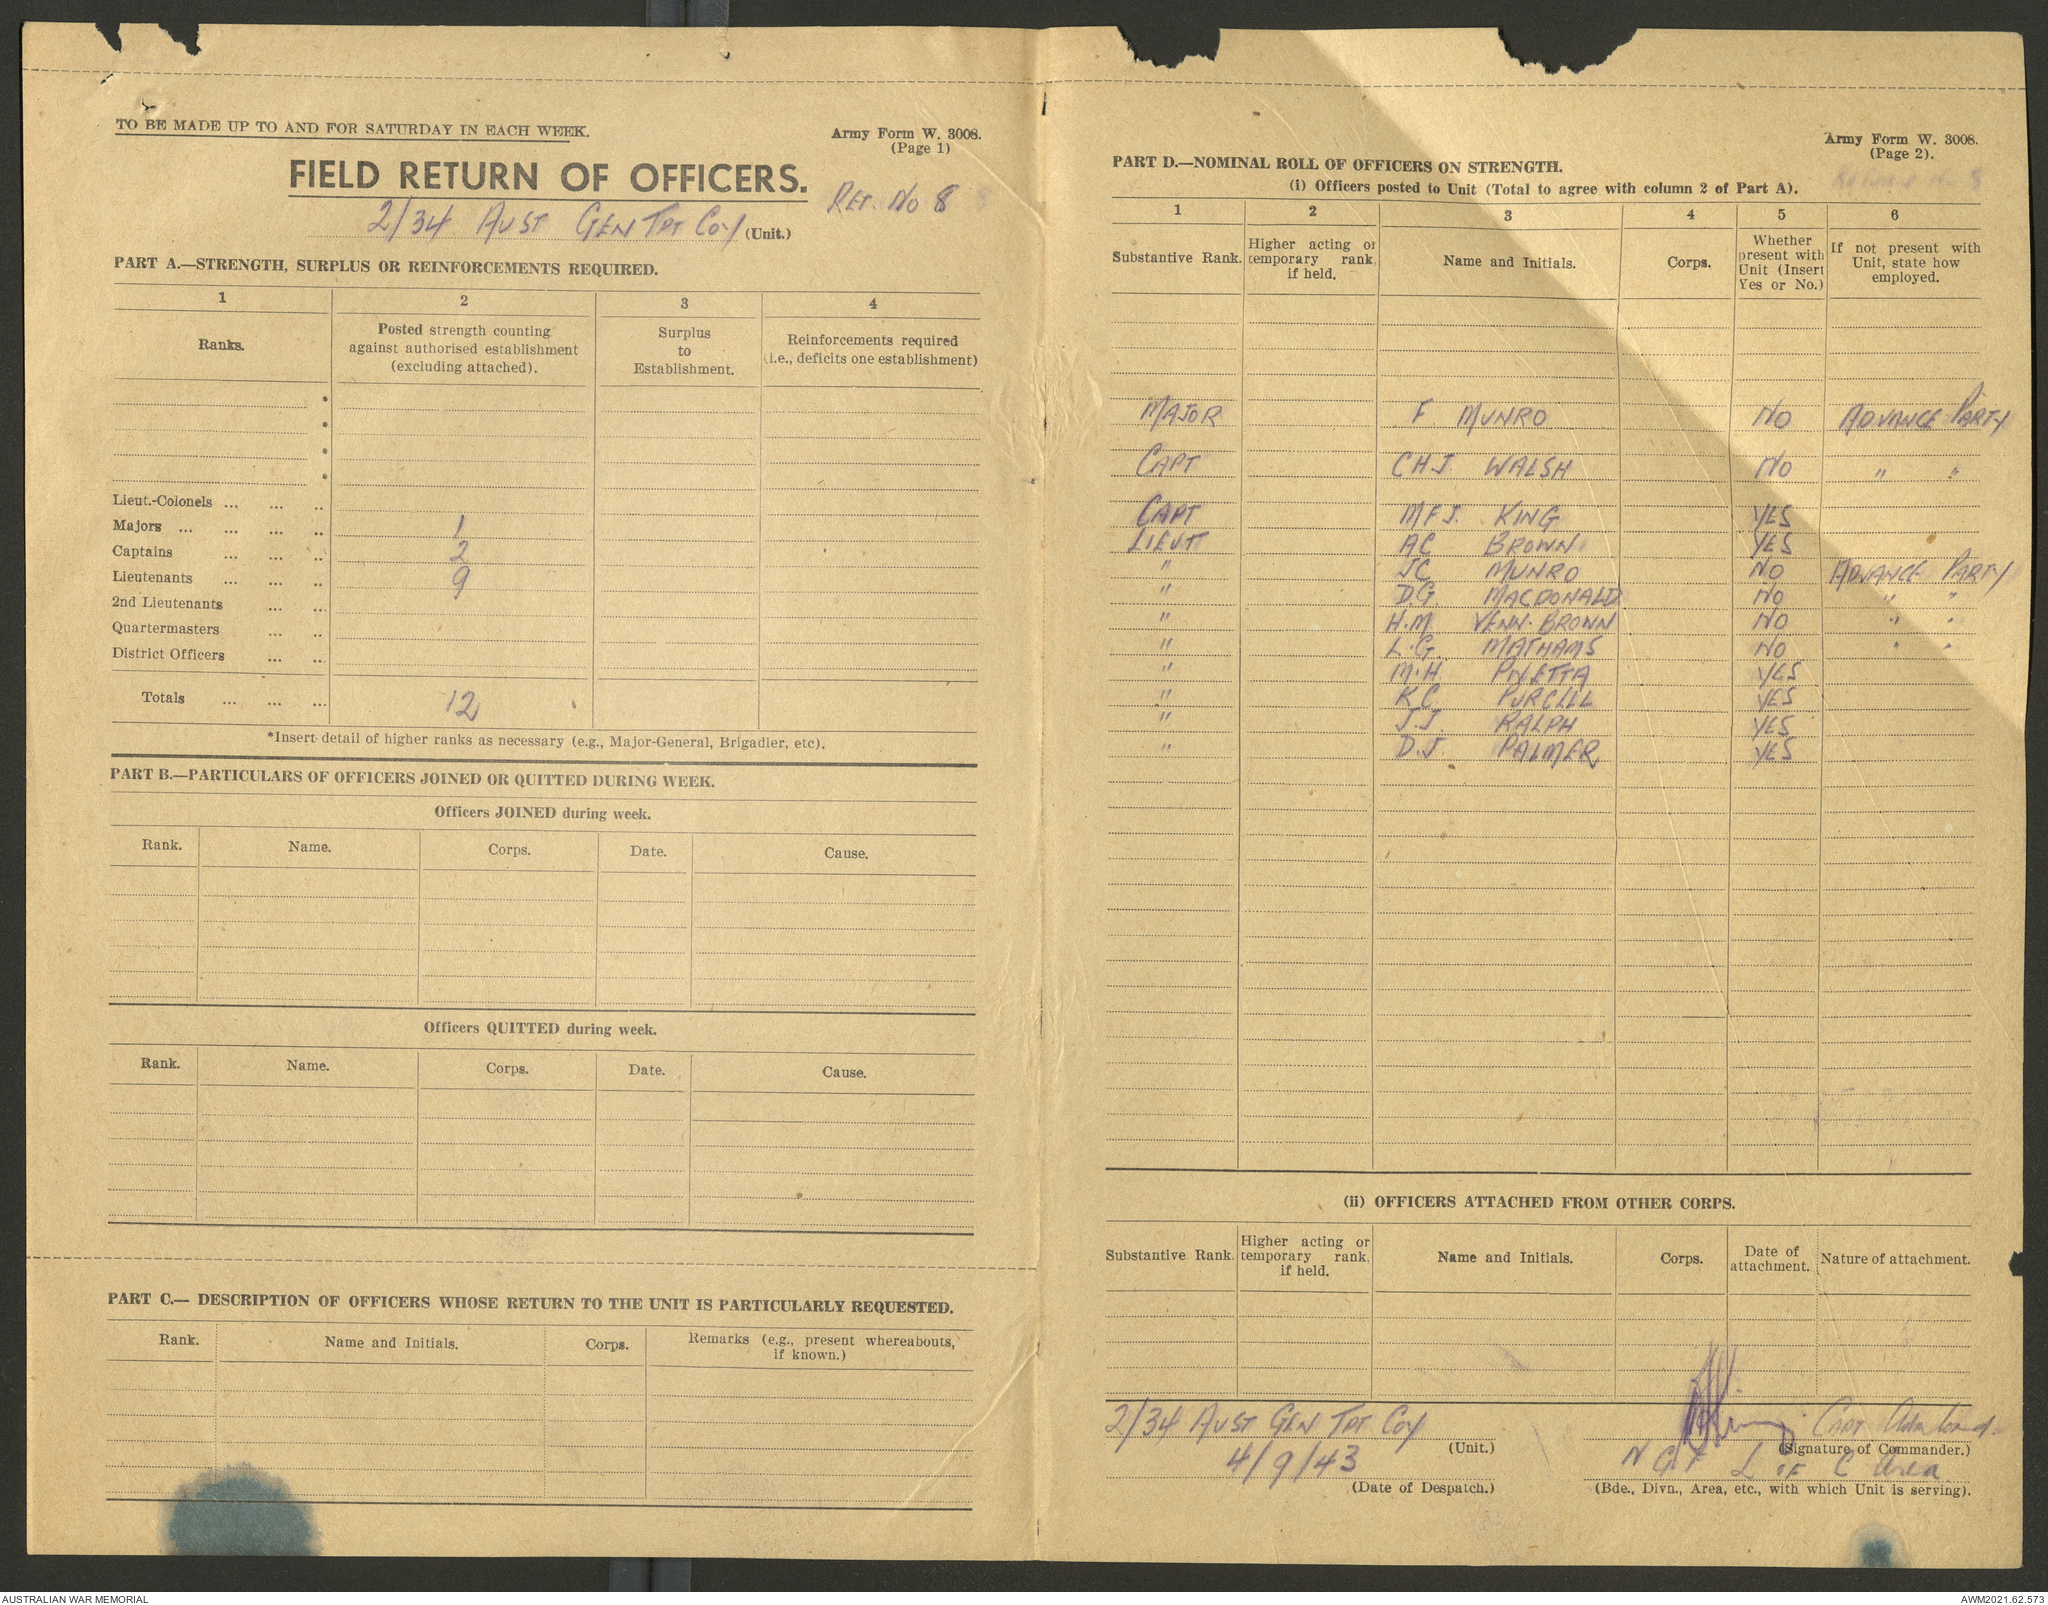 TO BE MADE UP TO AND FOR SATURDAY IN EACH WEEK.
Army Form W. 3008.
(Page 1)
FIELD RETURN OF OFFICERS.
RET. NO 8
2/34 AUST GEN TPT COY (Unit.)
PART A.—STRENGTH, SURPLUS OR REINFORCEMENTS REQUIRED.
1 2 3 4
Ranks.
Posted strength counting
against authorised establishment
(excluding attached).
Surplus
to
Establishment.
Reinforcements required
(i.e., deficits one establishment)
*
*
*
*
Lieut.-Colonels ... ... ..
Majors ... ... ... .. 1
Captains ... ... .. 2
Lieutenants ... ... .. 9
2nd Lieutenants ... ..
Quartermasters ... ..
District Officers ... ..
Totals ... ... ... 12
*Insert detail of higher ranks as necessary (e.g., Major-General, Brigadier, etc).
PART B.—PARTICULARS OF OFFICERS JOINED OR QUITTED DURING WEEK.
Officers JOINED during week.
Rank. Name. Corps. Date. Cause.
Officers QUITTED during week.
Rank. Name. Corps. Date. Cause.
PART C.— DESCRIPTION OF OFFICERS WHOSE RETURN TO THE UNIT IS PARTICULARLY REQUESTED.
Rank. Name and Initials. Corps. Remarks (e.g., present whereabouts,
if known.)
Army Form W. 3008.
(Page 2).
PART D.—NOMINAL ROLL OF OFFICERS ON STRENGTH.
(i) Officers posted to Unit (Total to agree with column 2 of Part A).
1 2 3 4 5 6
Substantive Rank.
Higher acting or
temporary rank,
if held.
Name and Initials.
Corps.
Whether
present with
Unit (Insert
Yes or No.)
If not present with
Unit, state how
employed.
MAJOR F MUNRO NO ADVANCE PARTY
CAPT CHJ WALSH NO " "
CAPT MFJ. KING YES
LIEUT AC BROWN YES
" JC MUNRO NO ADVANCE PARTY
" DG. MACDONALD NO " "
" H.M. VENN-BROWN NO " "
" L.G. MATHAMS NO " "
" M.H. PIVETTA YES
" KC PURCELL YES
" J.J. RALPH YES
" D.J. PALMER YES
(ii) OFFICERS ATTACHED FROM OTHER CORPS.
Substantive Rank.
Higher acting or
temporary rank,
if held.
Name and Initials.
Corps.
Date of
attachment.
Nature of attachment.
2/34 AUST GEN TPT COY (Unit.)
4/9/43
(Date of Despatch.)
Capt
(Signature of Commander.)
N G F L of C Area
(Bde., Divn., Area, etc., with which Unit is serving).
AUSTRALIAN WAR MEMORIAL
AWM2021.62.573